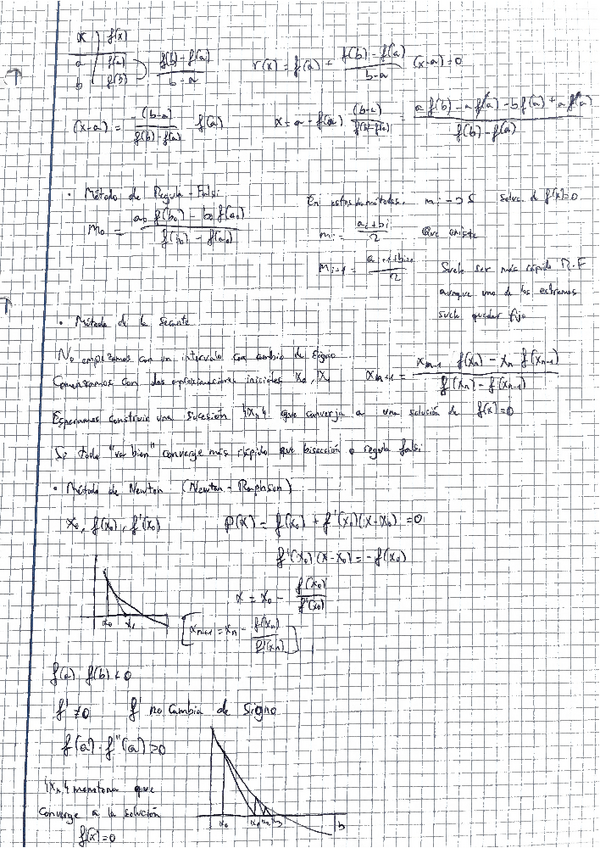 x | f(x)
a | f(a)
b | f(b)
f(b) - f(a) / b - a
r(x) = f(a) + f(b) - f(a) / b-a (x-a) = 0
(x-a) = -(b-a) / f(b) - f(a) f(a)
x = a - f(a) (b-a) / f(b)-f(a) = a f(b) - a f(a) - b f(a) + a f(a) / f(b) - f(a)
• Método de Regula-Falsi
m₀ = a₀ f(b₀) - b₀ f(a₀) / f(b₀) - f(a₀)
En estos métodos. mᵢ → S soluc. de f(x)=0
mᵢ = aᵢ+bᵢ / 2 Que existe
mᵢ₊₁ = aᵢ₊₁+bᵢ₊₁ / 2
Suele ser más rápido R.F
aunque uno de los extremos
suele quedar fijo
• Método de la Secante
No empezamos con un intervalo con cambio de signo
Comenzamos con dos aproximaciones iniciales x₀, x₁
xₙ₊₁ = xₙ₋₁ f(xₙ) - xₙ f(xₙ₋₁) / f(xₙ) - f(xₙ₋₁)
Esperamos construir una sucesión {xₙ} que converja a una solución de f(x)=0
Si todo "va bien" converge más rápido que bisección o regula falsi
• Método de Newton (Newton-Raphson)
x₀, f(x₀), f'(x₀)
p(x) = f(x₀) + f'(x₀)(x-x₀) = 0
f'(x₀)(x-x₀) = -f(x₀)
x = x₀ - f(x₀) / f'(x₀)
x₀ x₁
[xₙ₊₁ = xₙ - f(xₙ) / f'(xₙ)]
f(a) f(b) < 0
f' ≠ 0 f' no cambia de signo
f(a) · f''(a) > 0
{xₙ} monótona que
converge a la solución
f(x)=0
x₀ x₁ x₂ x₃ b